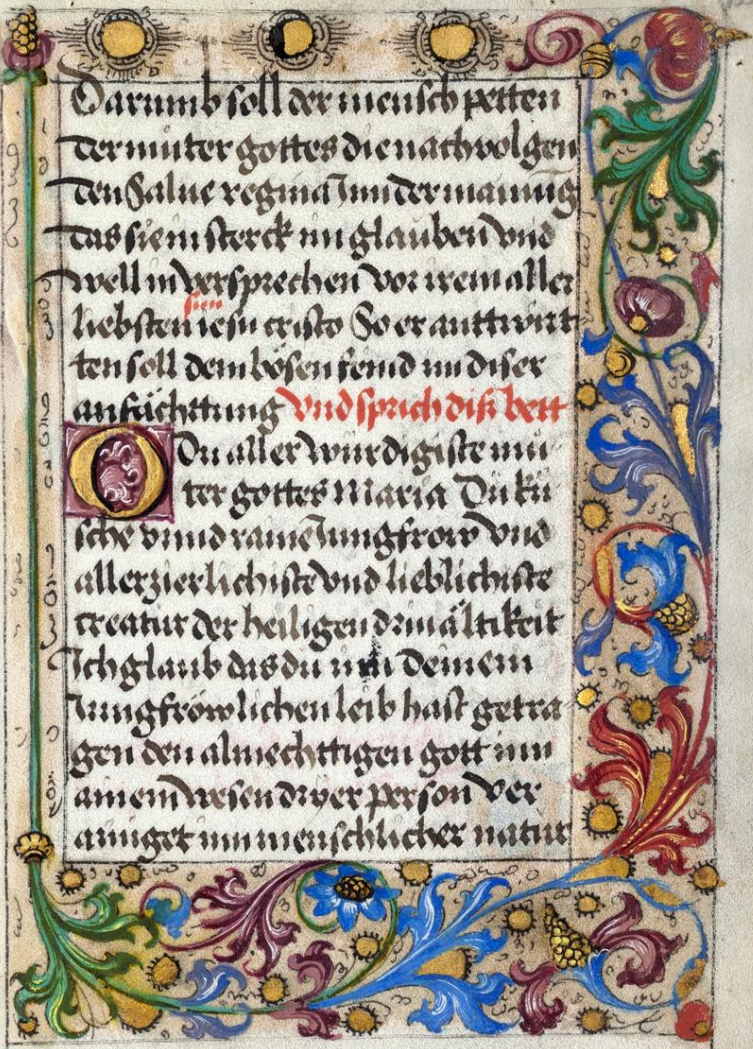 Darumb soll der mensch petten
der muter gottes die nachvolgen
den Salue regina Jnn der mainug
das sie in sterck im glauben vnd
well in versprechen vor irem aller
liebsten sun iesu cristo So er anttwurt
ten soll dem bösen feind inn diser
anfächttung vnd sprich diß bett
O Du aller würdigiste mu
ter gottes Maria Du kü
sche vnnd raine Jungfrow vnd
allerzierlichiste vnd lieblichiste
creatur der heiligen drinältikeit
Jch glaub das du inn deinem
Jungfröwlichen leib hast getra
gen den almechttigen gott inn
ainem wesen drver person ver
ainiget inn menschlicher natur